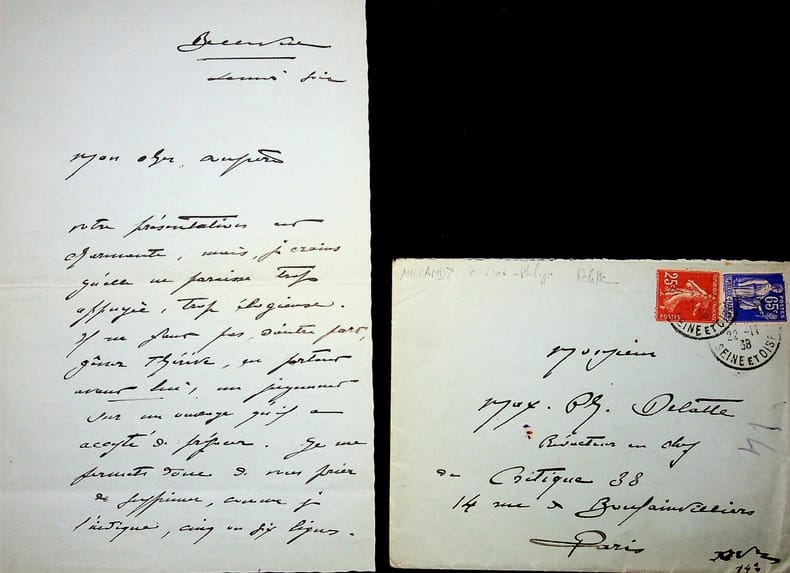 Bellevue
lundi soir
Mon cher confrère
votre présentation est
charmante, mais, je crains
qu'elle ne paraisse trop
appuyée, trop élogieuse.
Il ne faut pas, d'autre part,
gêner Thérive, en portant
avant lui, un jugement
sur un ouvrage qu'il a
accepté de préfacer. Je me
permets donc de vous prier
de supprimer, comme je
l'indique, cinq ou dix lignes.
à Max-Philippe Delatte
25c
POSTES
65c
POSTES
SEINE ET OISE
22 - 11
38
SEINE ET OISE
Monsieur
Max. Ph. Delatte
Rédacteur en chef
de Critique 38
14 rue de Boulainvilliers
Paris